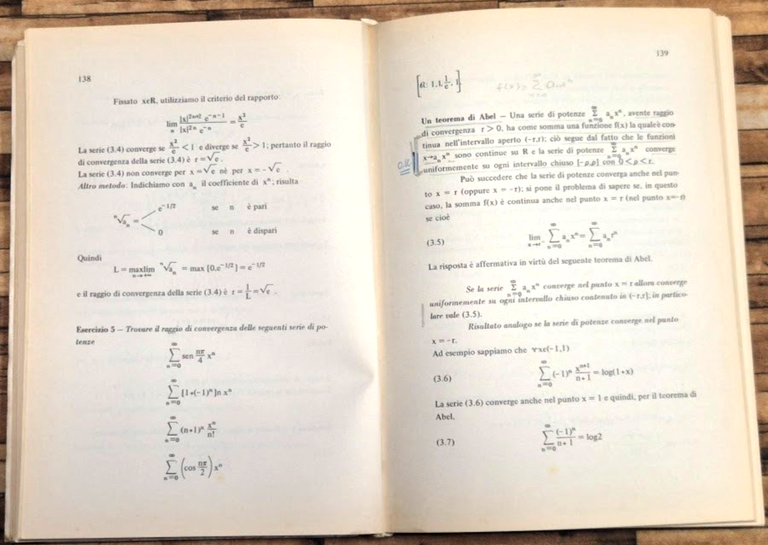 138
Fissato x∈R, utilizziamo il criterio del rapporto:
lim_n |x|^{2n+2} e^{-n-1} / |x|^{2n} e^{-n} = x²/e
La serie (3.4) converge se x²/e < 1 e diverge se x²/e > 1; pertanto il raggio
di convergenza della serie (3.4) è r = √e.
La serie (3.4) non converge per x = √e nè per x = - √e.
Altro metodo: Indichiamo con a_n il coefficiente di x^n; risulta
e^{-1/2} se n è pari
ⁿ√a_n =
0 se n è dispari
Quindi
L = maxlim_{n→+∞} ⁿ√a_n = max {0,e^{-1/2}} = e^{-1/2}
e il raggio di convergenza della serie (3.4) è r = 1/L = √e.
Esercizio 5 – Trovare il raggio di convergenza delle seguenti serie di po-
tenze
∑_{n=0}^∞ sen nπ/4 x^n
∑_{n=0}^∞ [1+(-1)^n]n x^n
∑_{n=0}^∞ (n+1)^n x^n/n!
∑_{n=0}^∞ (cos nπ/2) x^n
139
[R: 1,1,1/e,1]
f(x)= ∑ a_n x^n
Un teorema di Abel – Una serie di potenze ∑_{n=0}^∞ a_n x^n, avente raggio
di convergenza r > 0, ha come somma una funzione f(x) la quale è con-
tinua nell'intervallo aperto (-r,r); ciò segue dal fatto che le funzioni
x→a_n x^n sono continue su R e la serie di potenze ∑_{n=0}^∞ a_n x^n converge
uniformemente su ogni intervallo chiuso [-ρ,ρ] con 0<ρ<r.
Può succedere che la serie di potenza converga anche nel pun-
to x = r (oppure x = -r); si pone il problema di sapere se, in questo
caso, la somma f(x) è continua anche nel punto x = r (nel punto x=-r)
se cioè
(3.5) lim_{x→r⁻} ∑_{n=0}^∞ a_n x^n = ∑_{n=0}^∞ a_n r^n
La risposta è affermativa in virtù del seguente teorema di Abel.
Se la serie ∑_{n=0}^∞ a_n x^n converge nel punto x = r allora converge
uniformemente su ogni intervallo chiuso contenuto in (-r,r]; in partico-
lare vale (3.5).
Risultato analogo se la serie di potenze converge nel punto
x = -r.
Ad esempio sappiamo che ∀x∈(-1,1)
(3.6) ∑_{n=0}^∞ (-1)^n x^{n+1}/n+1 = log(1+x)
La serie (3.6) converge anche nel punto x = 1 e quindi, per il teorema di
Abel,
(3.7) ∑_{n=0}^∞ (-1)^n/n+1 = log2